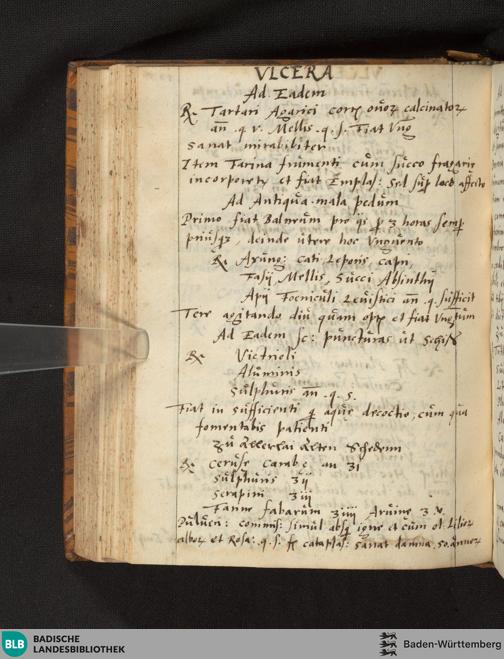 VLCERA
Ad Eadem
R. Tartari Agarici cort. ouor calcinator
an .q v. Mellis .q. s. Fiat Vng
Sanat mirabiliter
Item Farina frumenti cum succo fragarie
incorporetr et fiat Emplas: loco affecto
Ad Antiqua mala pedum
Primo fiat Balneum pro 3 horas semp
priusq, deinde utere hoc Vnguento
R. Axung: cati, Leporis, capri,
Taxi, Mellis, Succi Absinthij
Apij foeniculi Leuistici an .q. sufficit
Tere agitando diu quam opt et fiat Vngtum
Ad Eadem sc: puncturas ut
R. Victrioli
Aluminis
Sulphuris an .q. s.
Fiat in sufficienti q aque decoctio, cum qua
fomentabis patienti
Zu Allerlai Alten Scheden
R. Ceruse an
Sulphuris
Serapini
Farine fabarum
commis: simul absq igne et cum ol. Lilior
albor et Rosa: q. s. ft cataplas: sanat damna 50 annor
BLB BADISCHE
LANDESBIBLIOTHEK
Baden-Württemberg